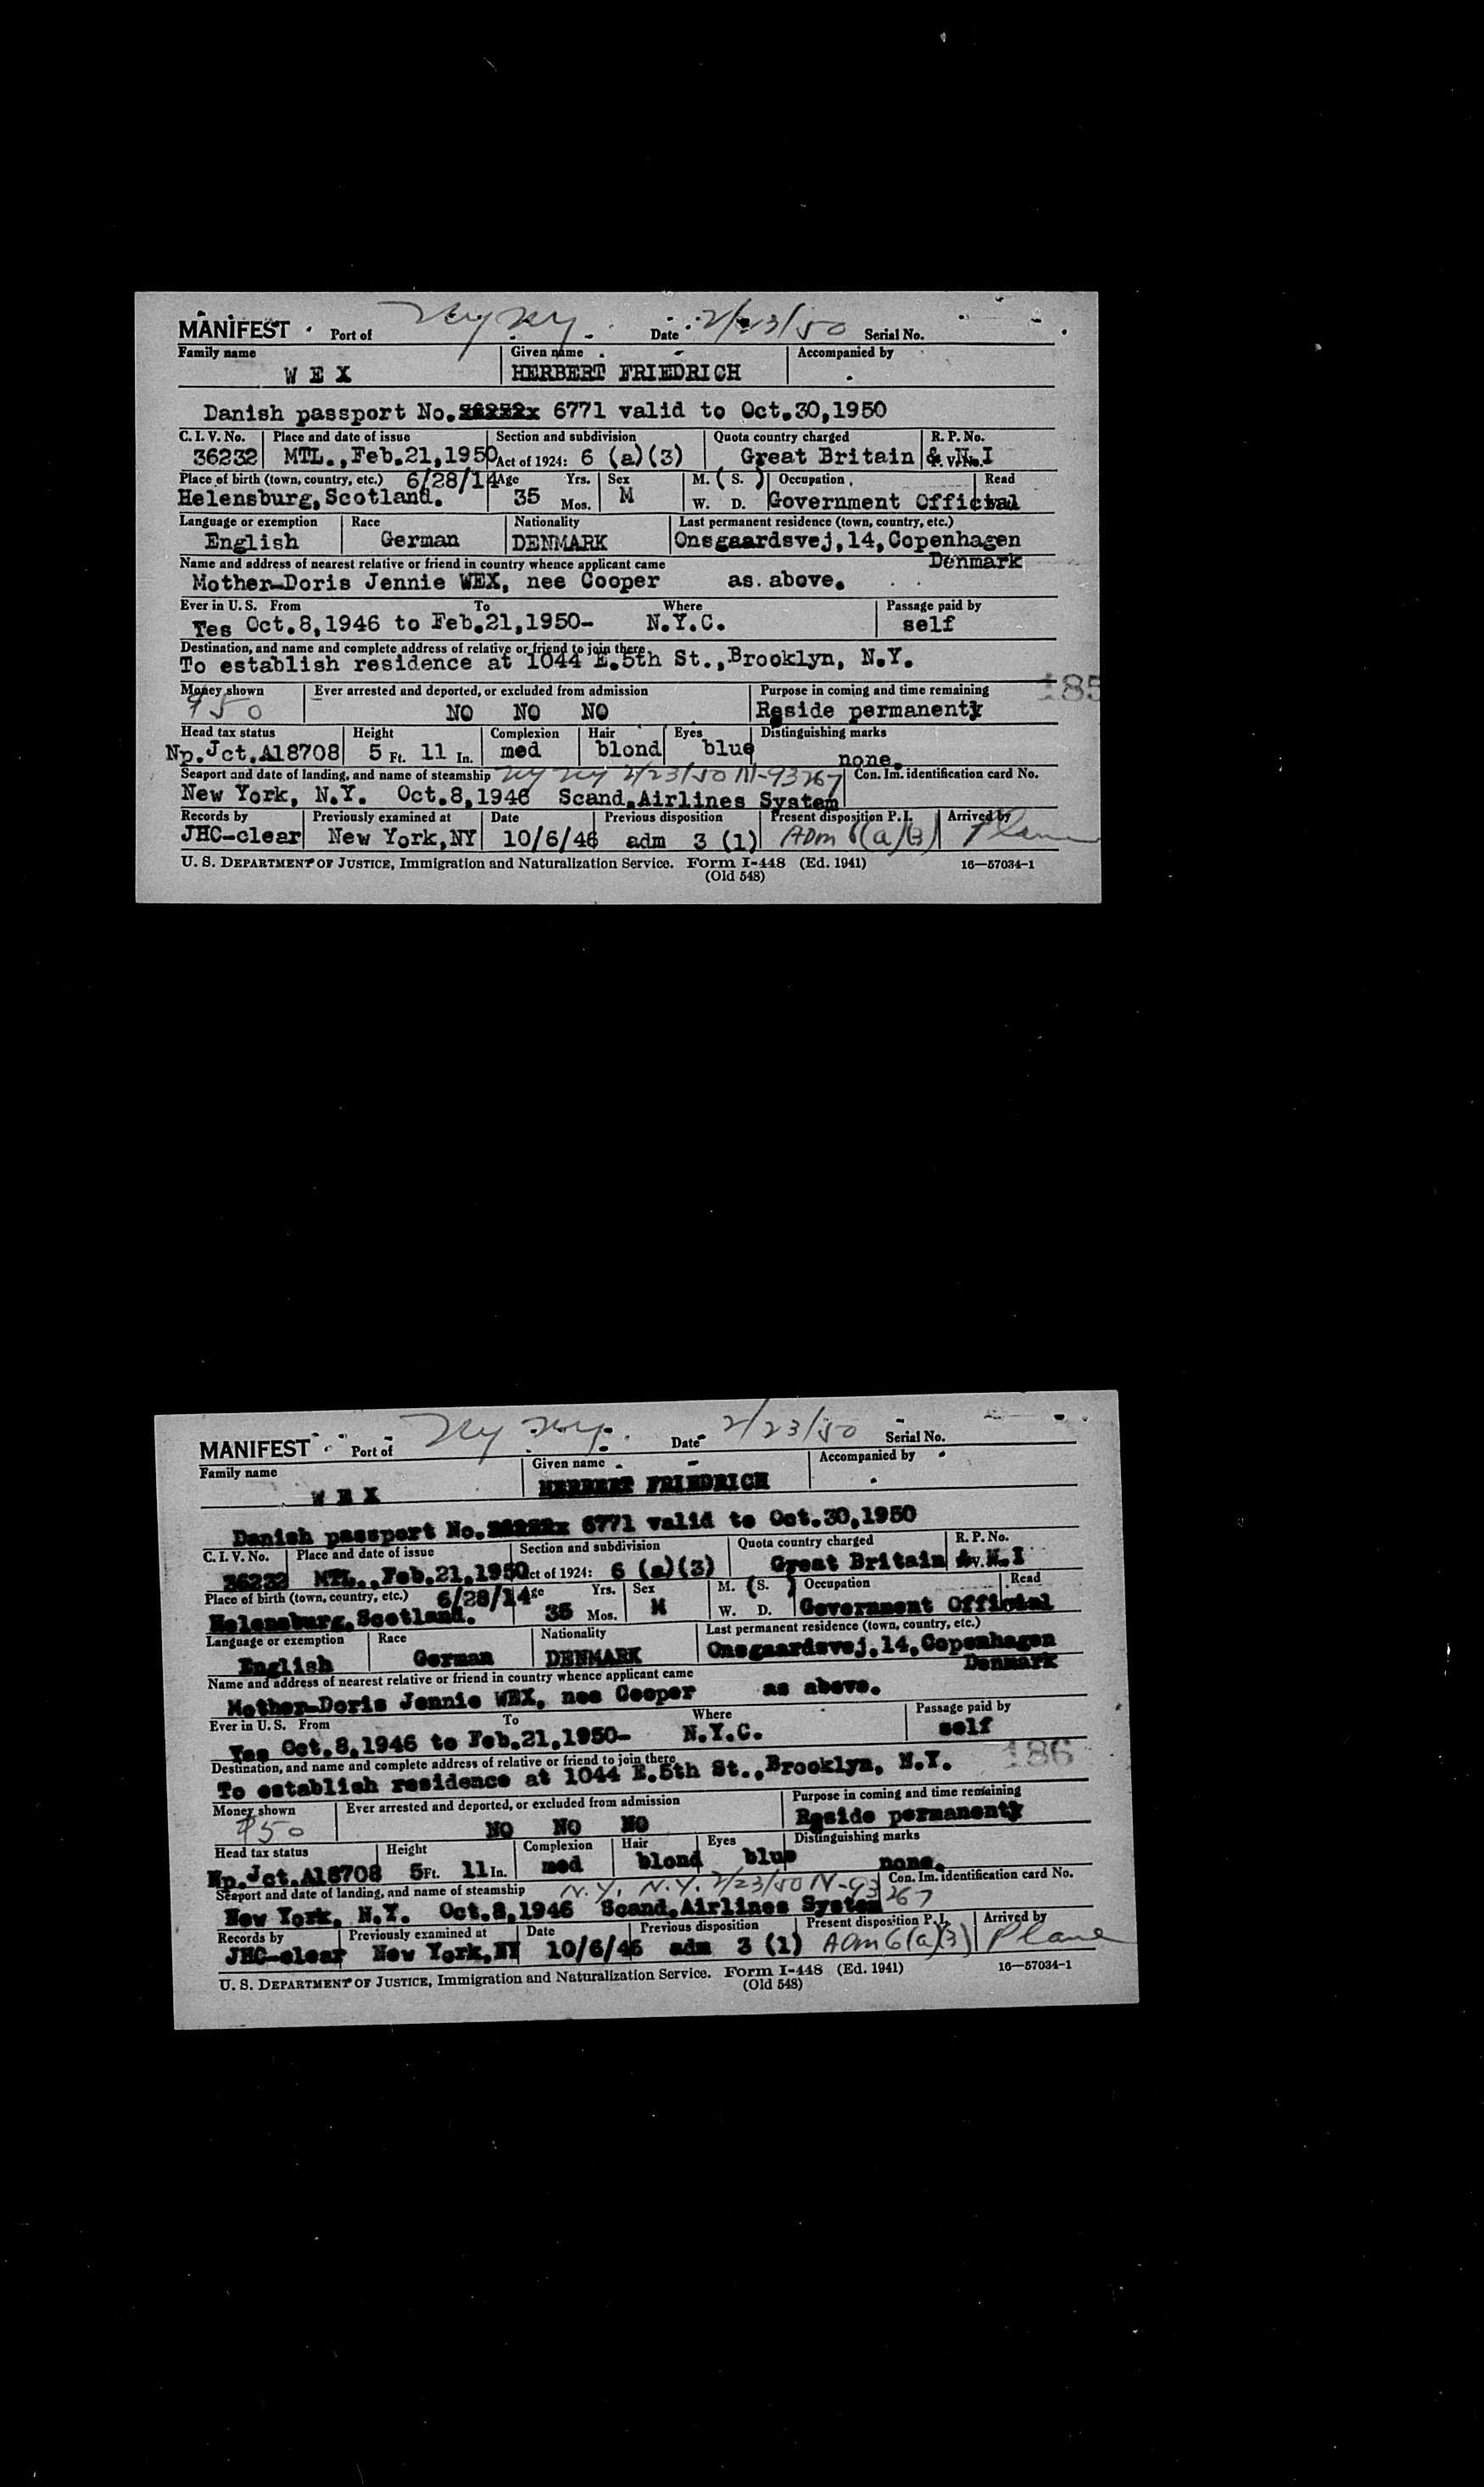 MANIFEST Port of NY NY. Date 2/23/50 Serial No.
Family name Given name Accompanied by
W E X HERBERT FRIEDRICH
Danish passport No. 6771 valid to Oct.30,1950
C. I. V. No. Place and date of issue Section and subdivision Quota country charged R. P. No.
36232 MTL.,Feb.21,1950 Act of 1924: 6 (a)(3) Great Britain & N.I
Place of birth (town, country, etc.) 6/28/14 Age Yrs. Sex M. ( S. ) Occupation Read
Helensburg,Scotland. 35 Mos. M W. D. Government Official
Language or exemption Race Nationality Last permanent residence (town, country, etc.)
English German DENMARK Onsgaardsvej,14,Copenhagen
Name and address of nearest relative or friend in country whence applicant came Denmark
Mother-Doris Jennie WEX, nee Cooper as above.
Ever in U. S. From To Where Passage paid by
Yes Oct.8,1946 to Feb.21,1950- N.Y.C. self
Destination, and name and complete address of relative or friend to join there
To establish residence at 1044 E.5th St.,Brooklyn, N.Y.
Money shown Ever arrested and deported, or excluded from admission Purpose in coming and time remaining 185
$50 NO NO NO Reside permanently
Head tax status Height Complexion Hair Eyes Distinguishing marks
Np.Jct.A18708 5 Ft. 11 In. med blond blue none.
Seaport and date of landing, and name of steamship NY NY 2/23/50 N-93267 Con. Im. identification card No.
New York, N.Y. Oct.8,1946 Scand.Airlines System
Records by Previously examined at Date Previous disposition Present disposition P. I. Arrived by
JHC-clear New York,NY 10/6/46 adm 3 (1) Adm 6(a)(3) Plane
U. S. DEPARTMENT OF JUSTICE, Immigration and Naturalization Service. Form I-448 (Ed. 1941) 16—57034-1
(Old 548)
MANIFEST Port of NY NY. Date 2/23/50 Serial No.
Family name Given name Accompanied by
W E X HERBERT FRIEDRICH
Danish passport No. 6771 valid to Oct.30,1950
C. I. V. No. Place and date of issue Section and subdivision Quota country charged R. P. No.
36232 MTL.,Feb.21,1950 Act of 1924: 6 (a)(3) Great Britain & N.I
Place of birth (town, country, etc.) 6/28/14 Age Yrs. Sex M. ( S. ) Occupation Read
Helensburg,Scotland. 35 Mos. M W. D. Government Official
Language or exemption Race Nationality Last permanent residence (town, country, etc.)
English German DENMARK Onsgaardsvej,14,Copenhagen
Name and address of nearest relative or friend in country whence applicant came Denmark
Mother-Doris Jennie WEX, nee Cooper as above.
Ever in U. S. From To Where Passage paid by
Yes Oct.8,1946 to Feb.21,1950- N.Y.C. self
Destination, and name and complete address of relative or friend to join there 186
To establish residence at 1044 E.5th St.,Brooklyn, N.Y.
Money shown Ever arrested and deported, or excluded from admission Purpose in coming and time remaining
$50 NO NO NO Reside permanently
Head tax status Height Complexion Hair Eyes Distinguishing marks
Np.Jct.A18708 5 Ft. 11 In. med blond blue none.
Seaport and date of landing, and name of steamship N.Y. N.Y. 2/23/50 N-93267 Con. Im. identification card No.
New York, N.Y. Oct.8,1946 Scand.Airlines System
Records by Previously examined at Date Previous disposition Present disposition P. I. Arrived by
JHC-clear New York,NY 10/6/46 adm 3 (1) Adm 6(a)(3) Plane
U. S. DEPARTMENT OF JUSTICE, Immigration and Naturalization Service. Form I-448 (Ed. 1941) 16—57034-1
(Old 548)